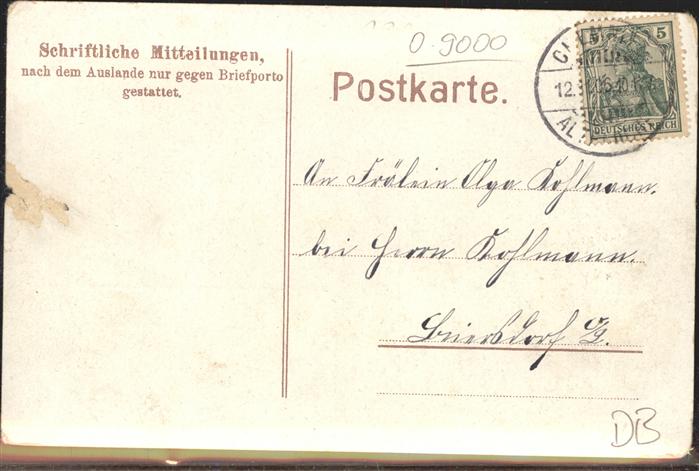 Schriftliche Mitteilungen,
nach dem Auslande nur gegen Briefporto
gestattet.
0.9000
Postkarte.
5 5
DEUTSCHES REICH
An Frälein Olga Kohlmann.
bei Herrn Kohlmann.
Beiersdorf
DB